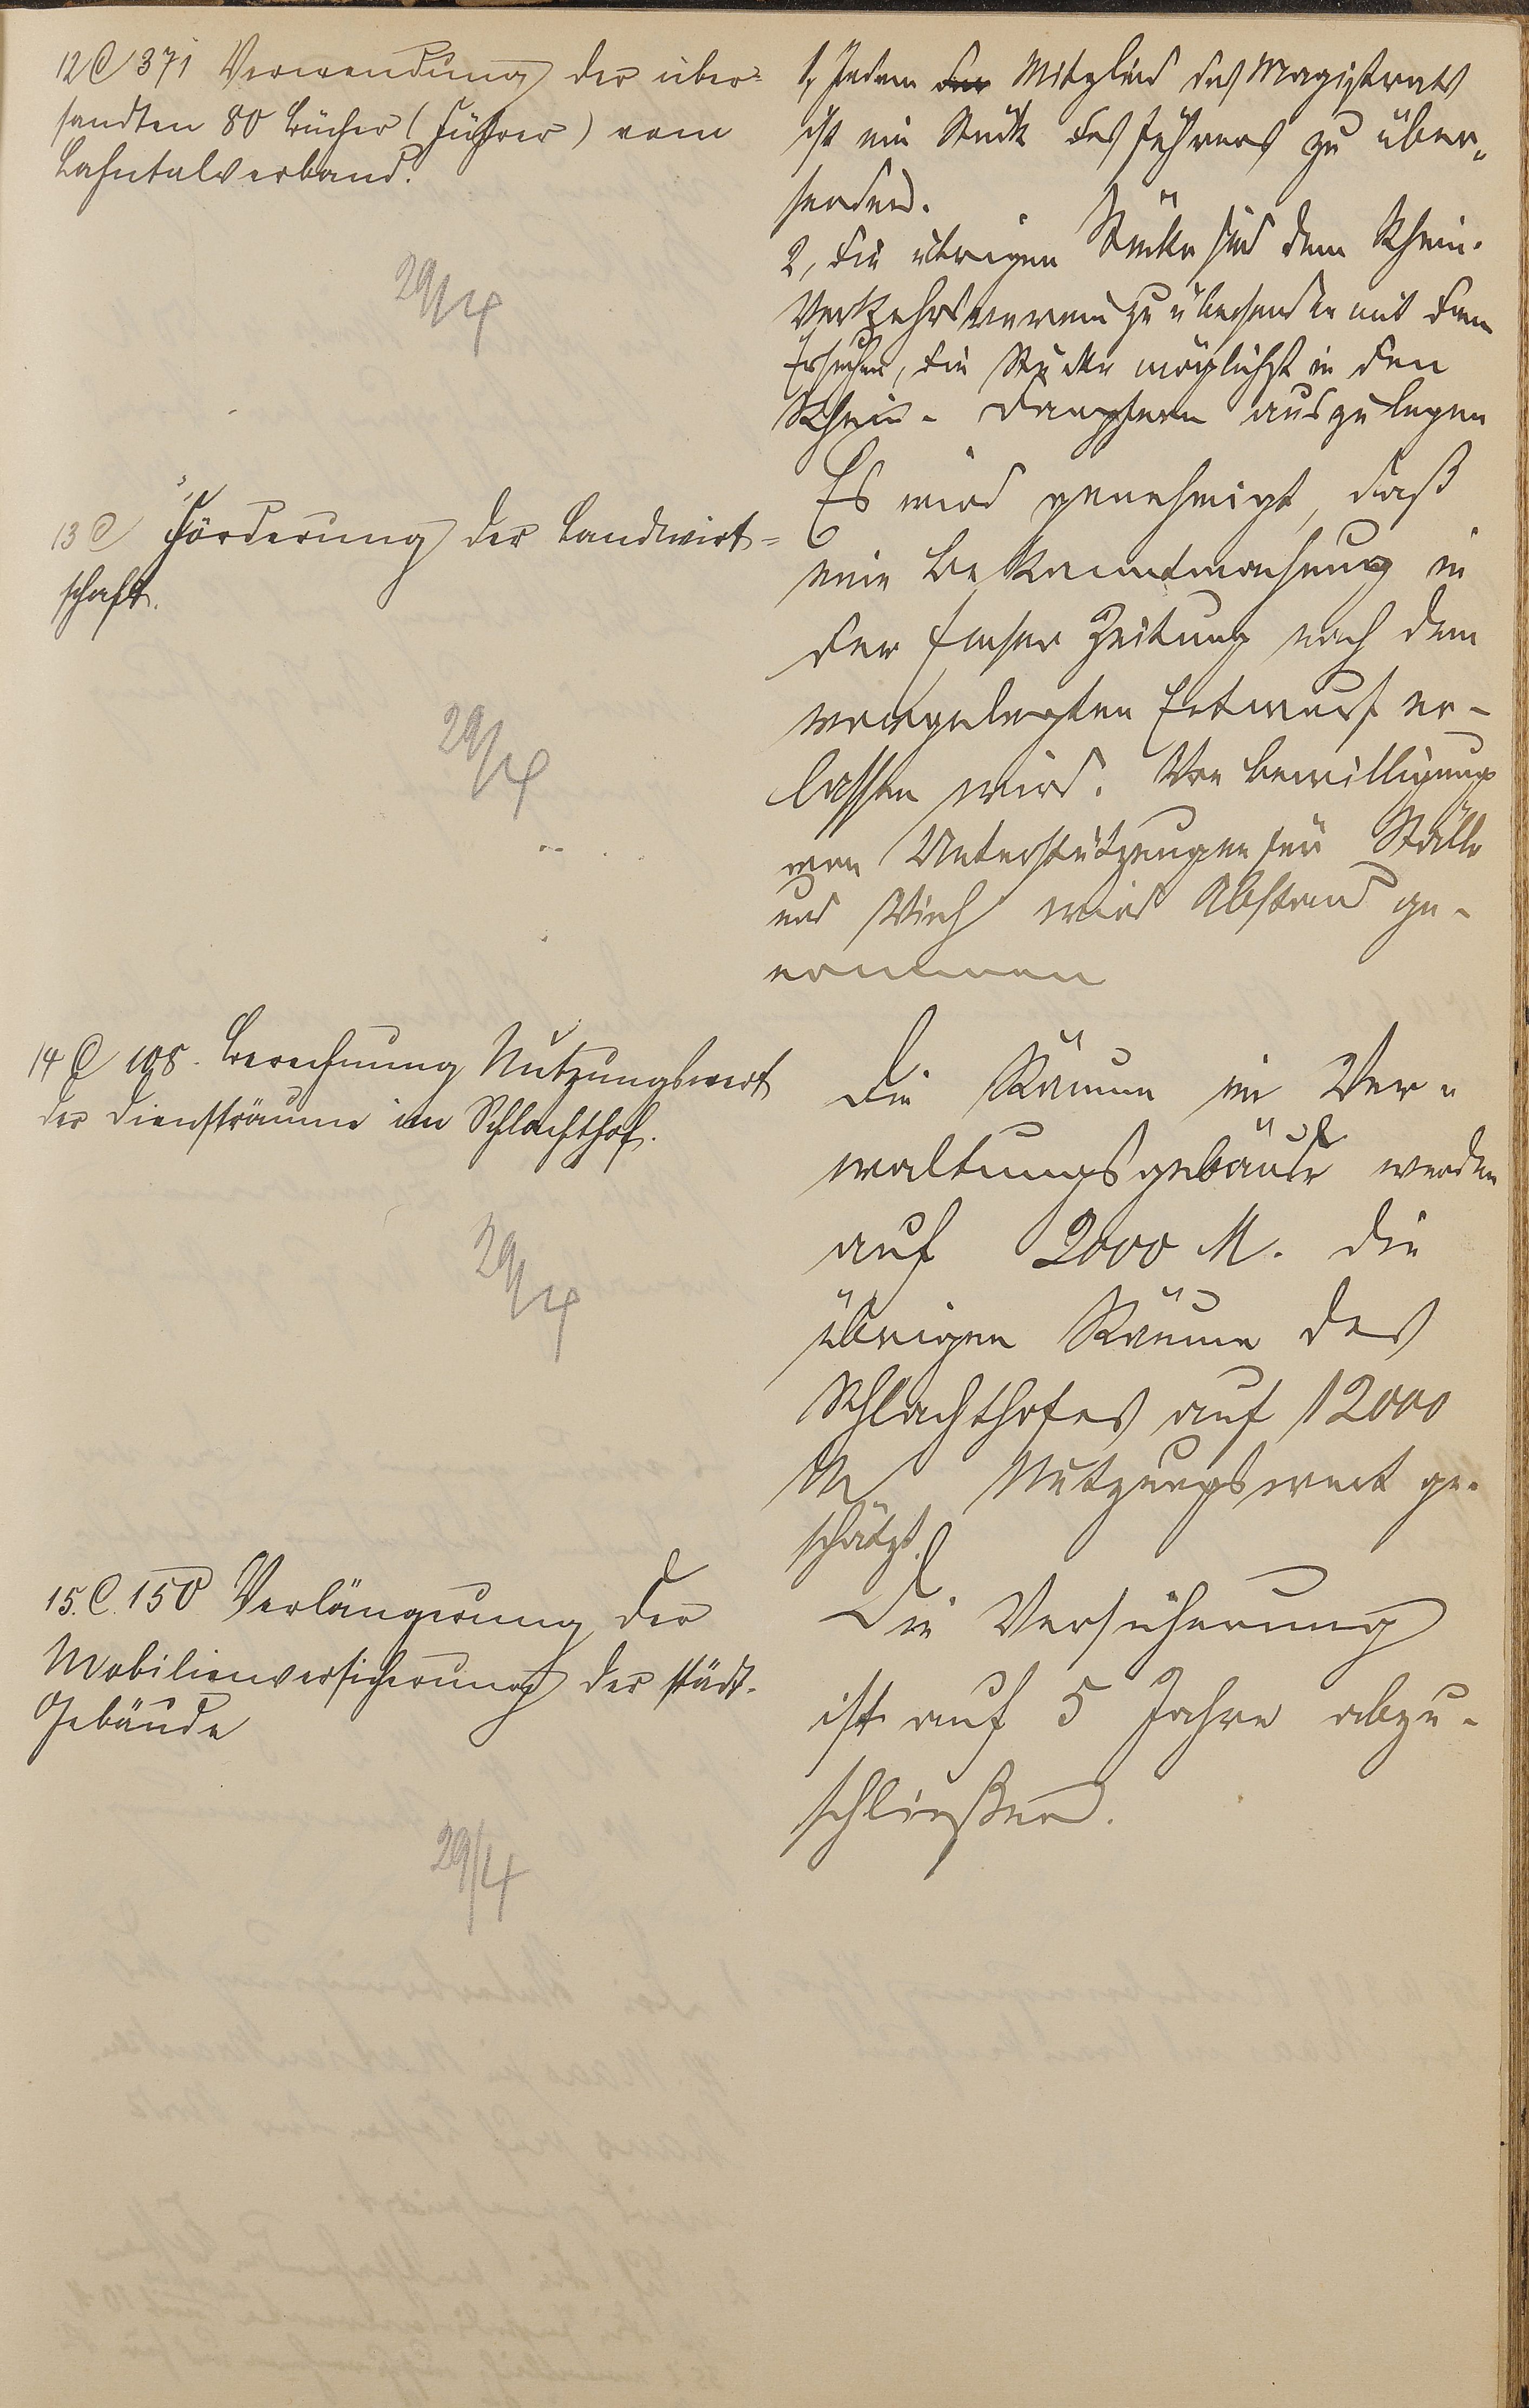 12 C 371 Verwendung der über-
sandten 80 Bücher (Führer) vom
Lahntalverband.
29/4
1, Jedem der Mitglied des Magistrats
ist ein Stück des Führers zu über-
senden.
2, Die übrigen Stücke sind dem Rhein.
Verkehrsverein zu übersenden mit dem
Ersuchen, die Stücke möglichst in den
Rhein-Dampfern auszulegen
13 C Förderung der Landwirt-
schaft.
29/4
Es wird genehmigt, daß
eine Bekanntmachung in
der Emser Zeitung nach dem
vorgelegten Entwurf er-
lassen wird. Von Bewilligung
von Unterstützungen für Ställe
und Vieh wird Abstand ge-
nommen
14 C 108. Berechnung Nutzungswert
der Diensträume im Schlachthof.
29/4
Die Räume im Ver-
waltungsgebäude werden
auf 2000 M. die
übrigen Räume des
Schlachthofes auf 12000
M Nutzungswert ge-
schätzt.
15. C. 150 Verlängerung der
Mobilienversicherung der städt.
Gebäude
29/4
Die Versicherung
ist auf 5 Jahre abzu-
schließen.